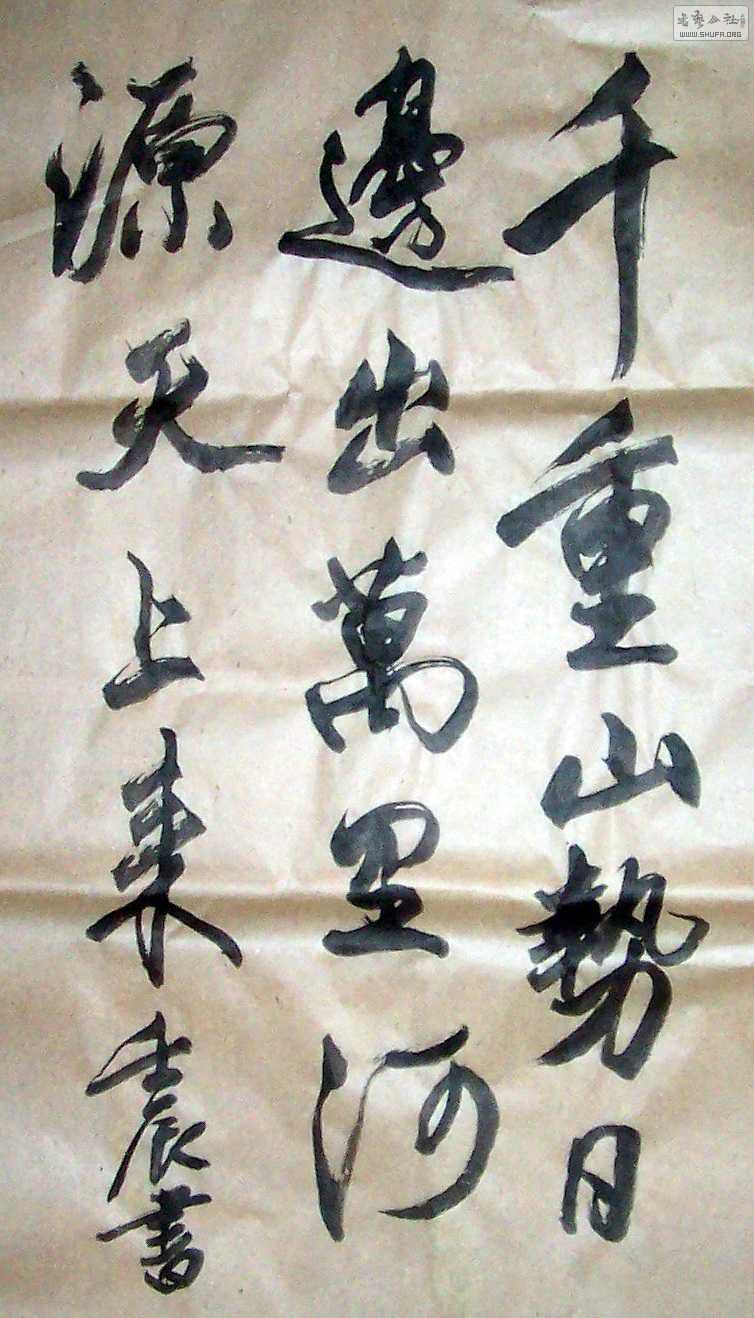 千重山勢日
邊出萬里河
源天上来壬辰書
書藝公社
WWW.SHUFA.ORG